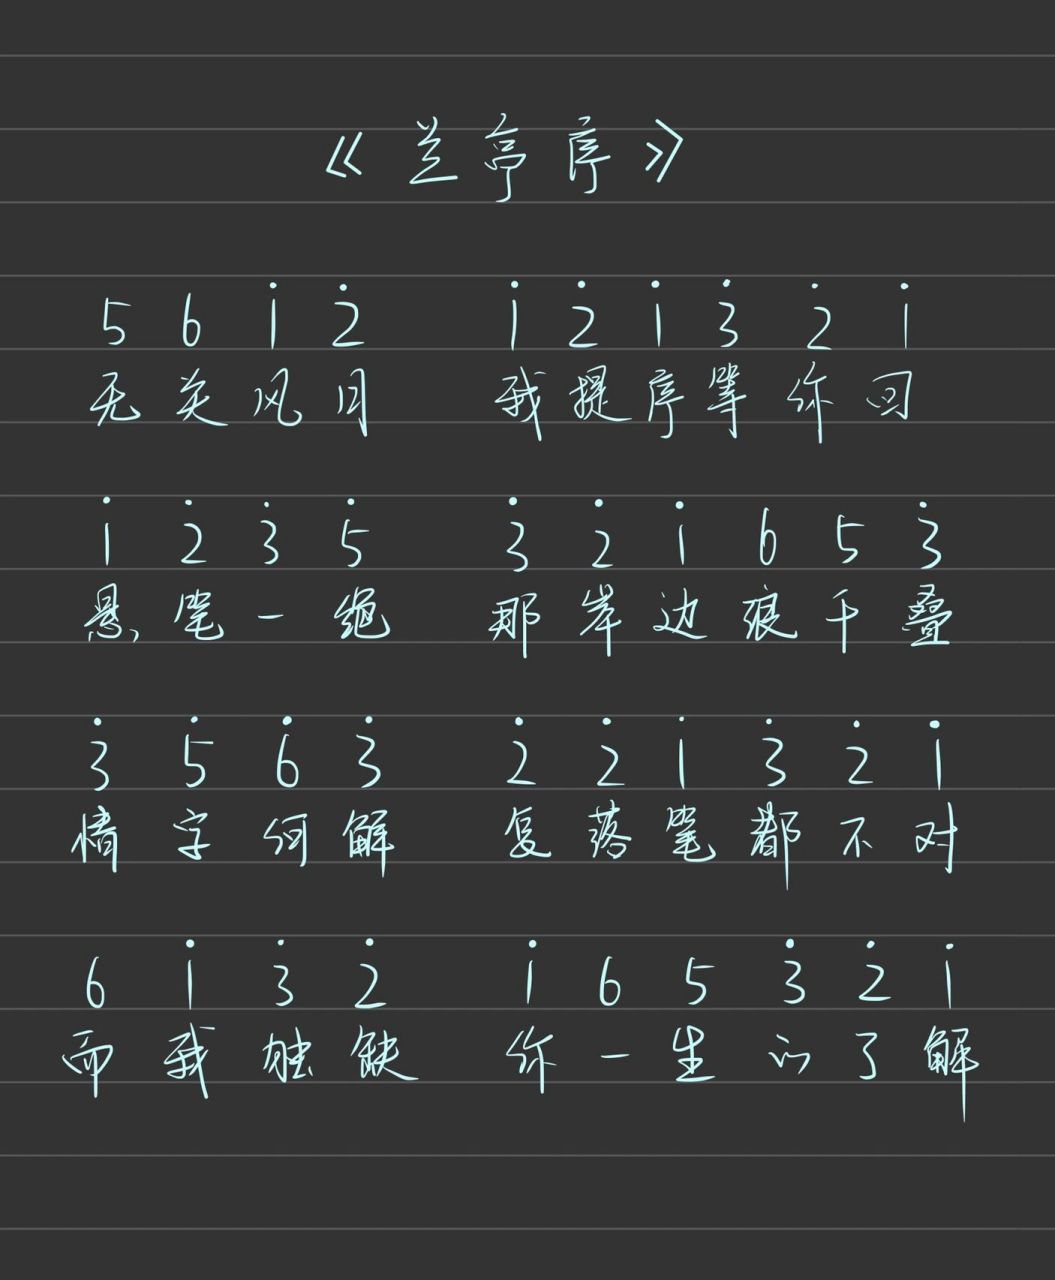 《兰亭序》
5 6 i̇ 2̇ 1̇ 2̇ 1̇ 3̇ 2̇ 1̇
无关风月 我提序等你回
1̇ 2̇ 3̇ 5̇ 3̇ 2̇ 1̇ 6 5 3̇
悬笔一绝 那岸边浪千叠
3̇ 5̇ 6̇ 3̇ 2̇ 2̇ 1̇ 3̇ 2̇ 1̇
情字何解 怎落笔都不对
6 1̇ 3̇ 2̇ 1̇ 6 5 3̇ 2̇ 1̇
而我独缺 你一生的了解